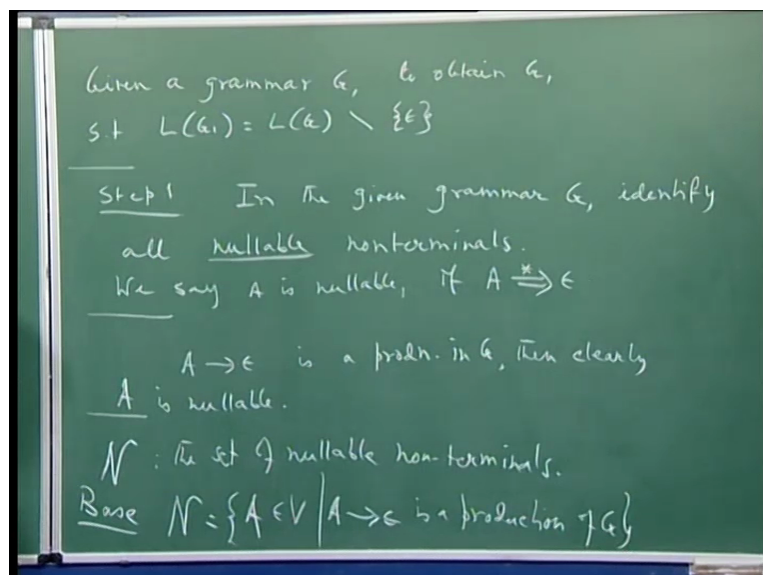 Given a grammar G, to obtain G₁
s.t L(G₁) = L(G) \ {ϵ}
Step 1 In the given grammar G, identify
all nullable nonterminals.
We say A is nullable, if A ⇒* ϵ
A → ϵ is a prodn. in G, then clearly
A is nullable.
N : The set of nullable non-terminals.
Base N = {A ∈ V | A → ϵ is a production of G}